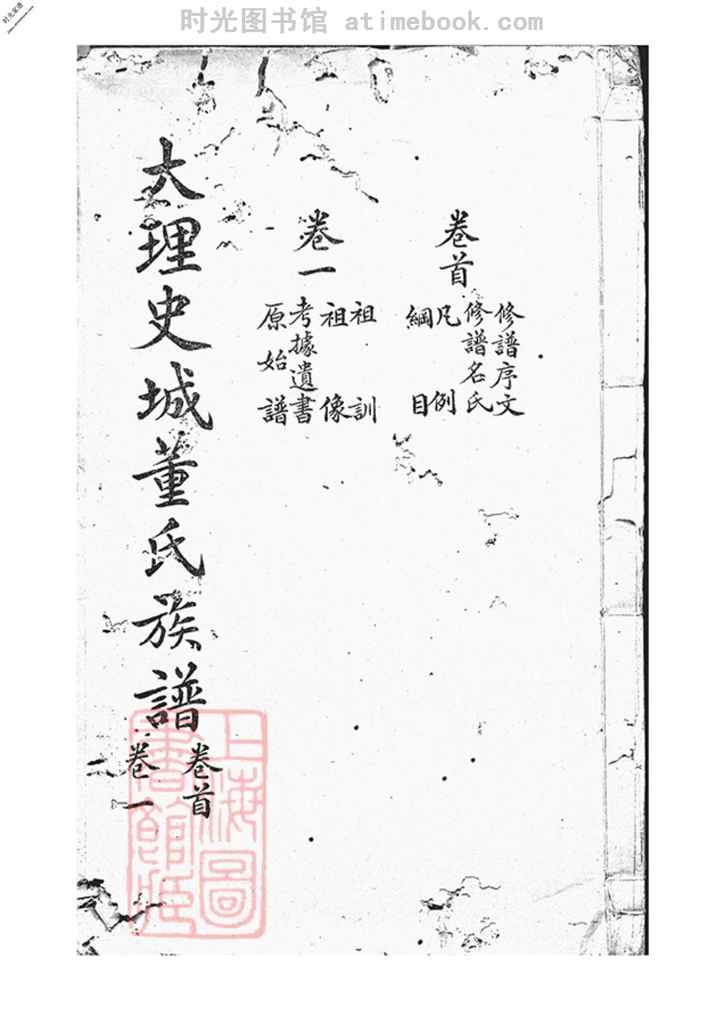 时光图书馆 atimebook.com
卷首
修譜序文
修譜名氏
凡例
綱目
卷一
祖訓
祖像
考據遺書
原始譜
大理史城董氏族譜
卷首
卷一
上海圖
書館藏